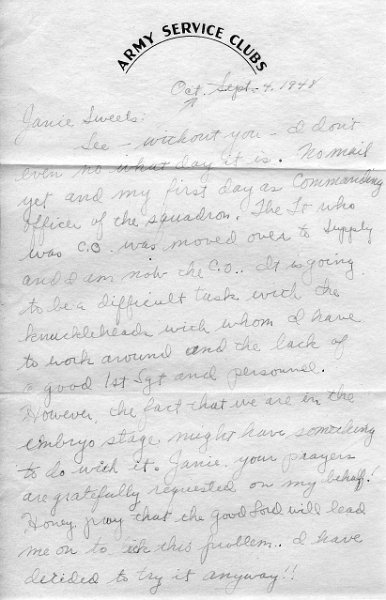 ARMY SERVICE CLUBS
Oct. Sept. 4, 1948
Janie Sweets:
See - without you - I don't
even no what day it is. No mail
yet and my first day as Commanding
officer of the squadron. The Lt who
was C.O. was moved over to Supply
and I am now the C.O.. It is going
to be a difficult task with the
knuckleheads with whom I have
to work around and the lack of
a good 1st Sgt and personnel.
However, the fact that we are in the
embryo stage might have something
to do with it. Janie, your prayers
are gratefully requested on my behalf!
Honey, pray that the good Lord will lead
me on to this problem. I have
decided to try it anyway!!